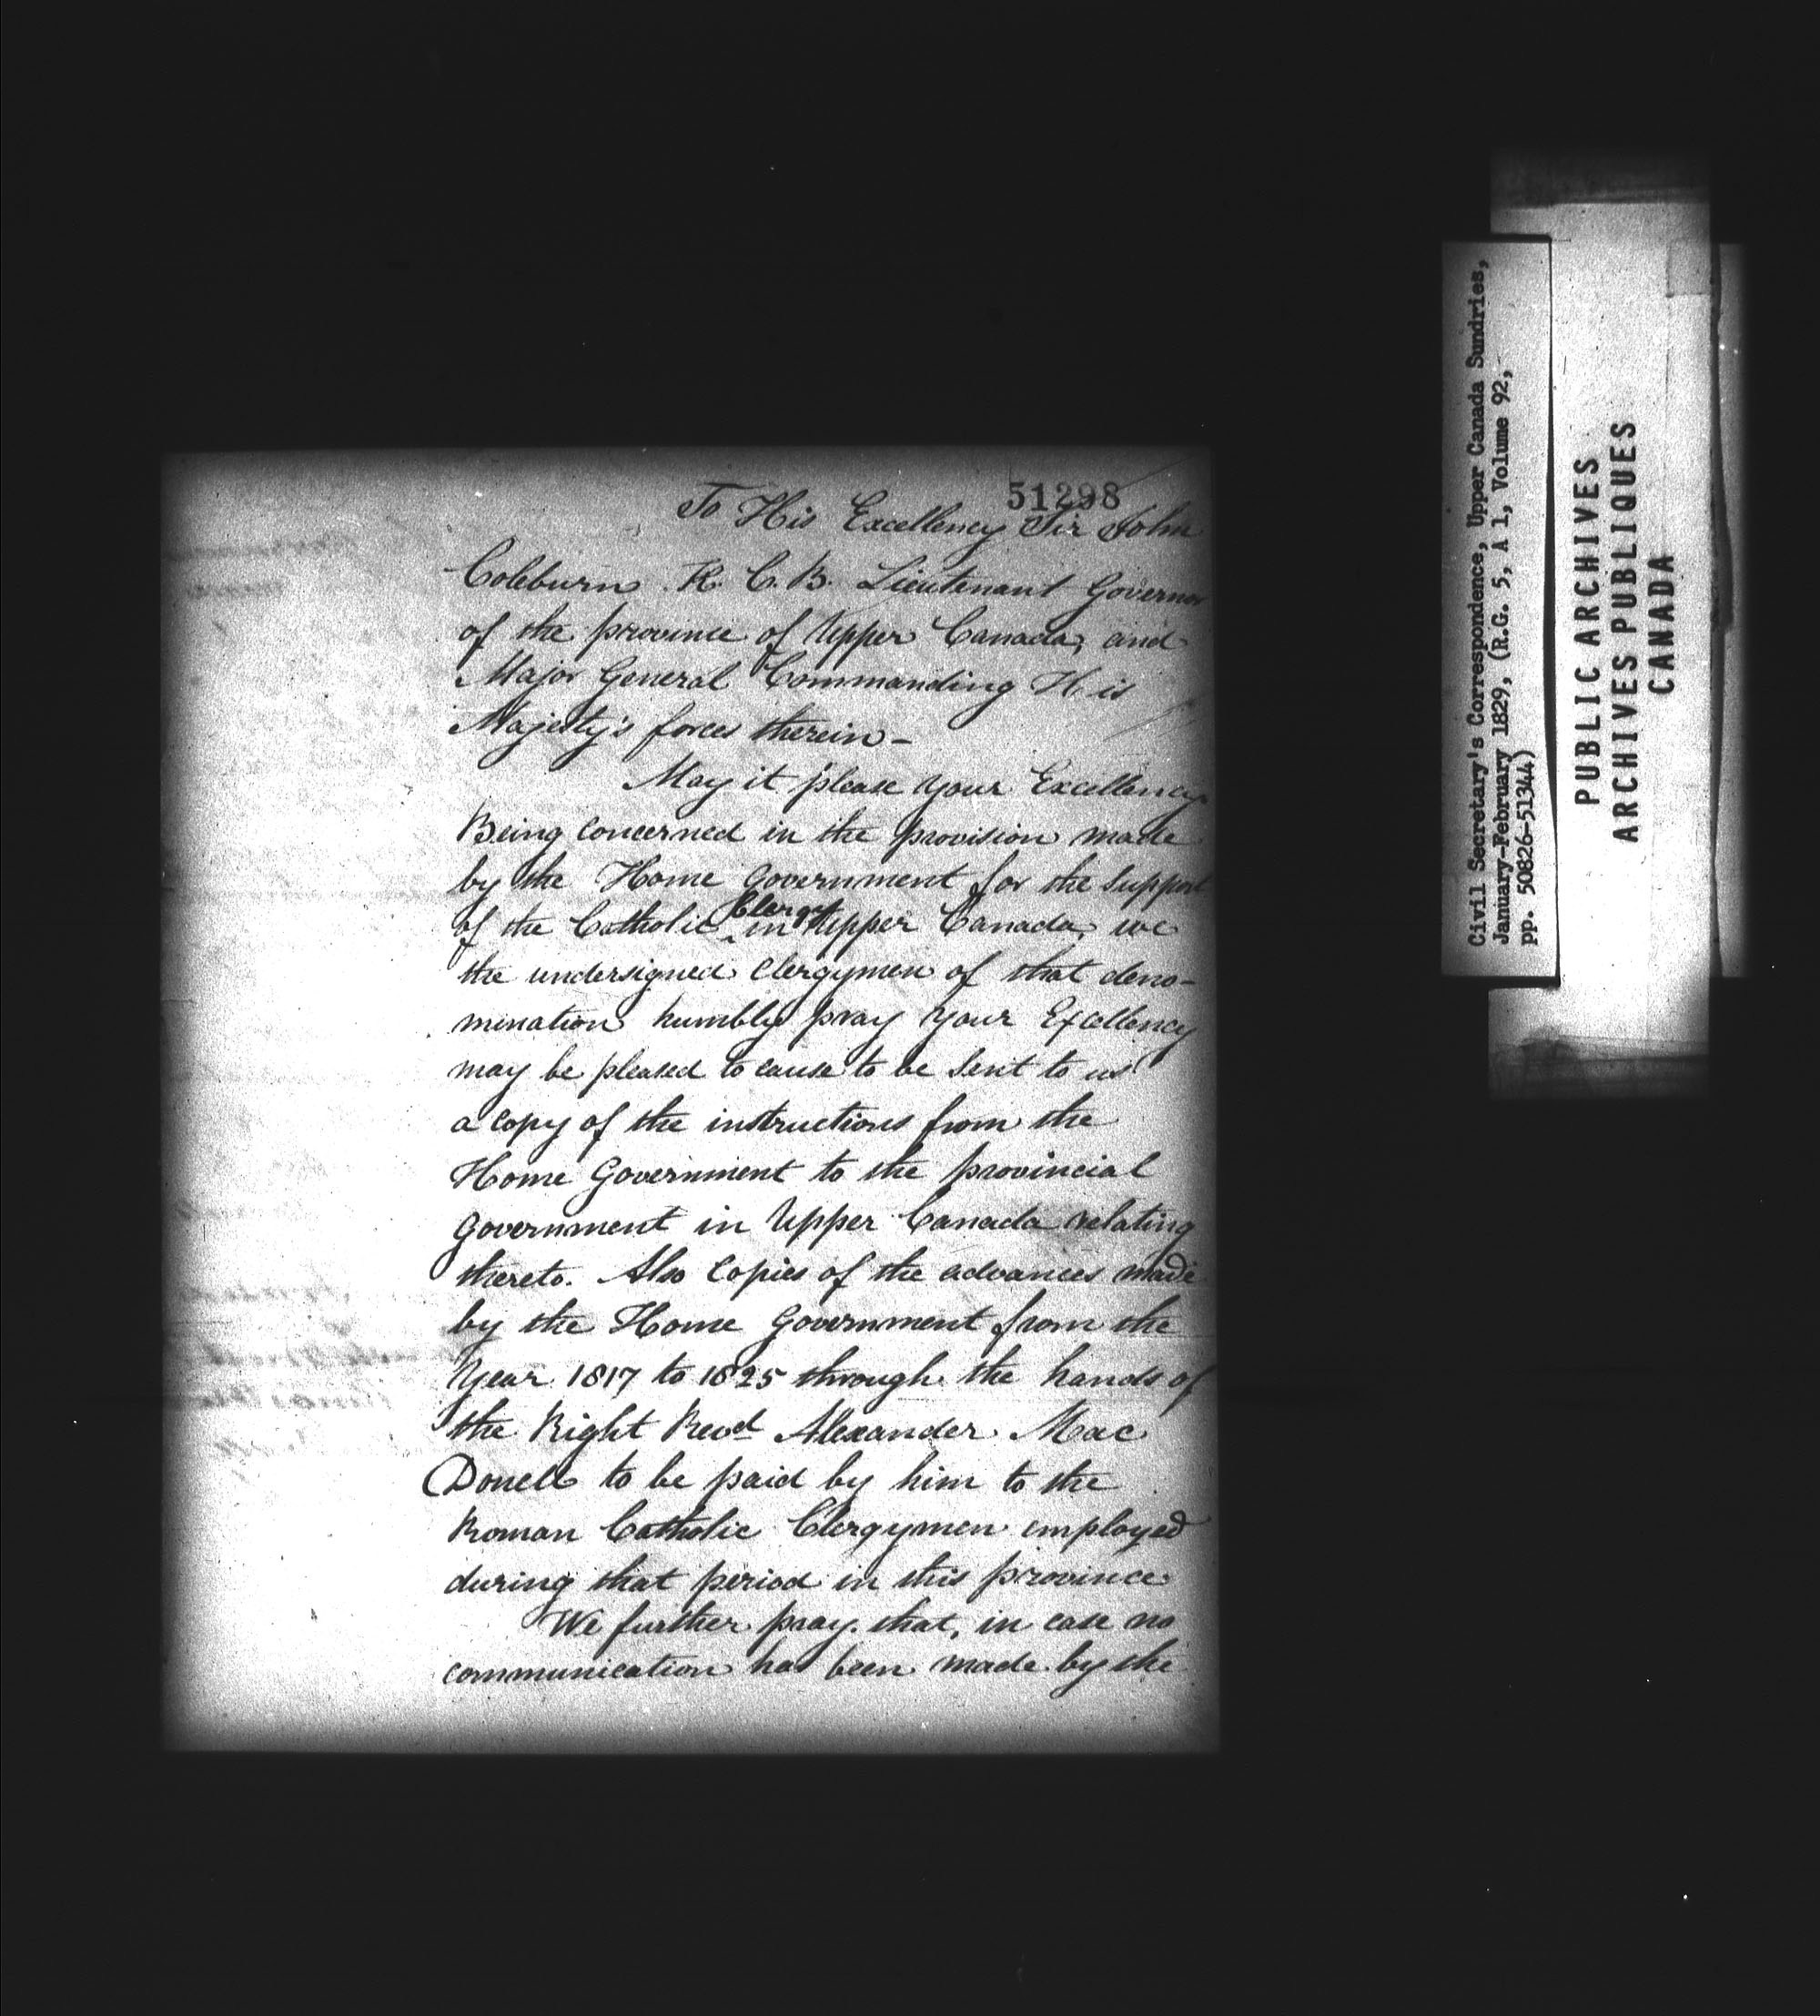 51298
To His Excellency Sir John
Coleburn K. C. B. Lieutenant Governor
of the province of Upper Canada, and
Major General Commanding His
Majesty's forces therein -
May it please your Excellency
Being concerned in the provision made
by the Home Government for the support
of the Catholic Clergy in Upper Canada, we
the undersigned Clergymen of that deno-
mination humbly pray your Excellency
may be pleased to cause to be sent to us
a copy of the instructions from the
Home Government to the provincial
Government in Upper Canada relating
thereto. Also Copies of the advances made
by the Home Government from the
year 1817 to 1825 through the hands of
the Right Revd Alexander Mac
Donell to be paid by him to the
Roman Catholic Clergymen employed
during that period in this province
We further pray that, in case no
communication has been made by the
Civil Secretary's Correspondence, Upper Canada Sundries,
January-February 1829, (R.G. 5, A 1, Volume 92,
pp. 50826-51344)
PUBLIC ARCHIVES
ARCHIVES PUBLIQUES
CANADA